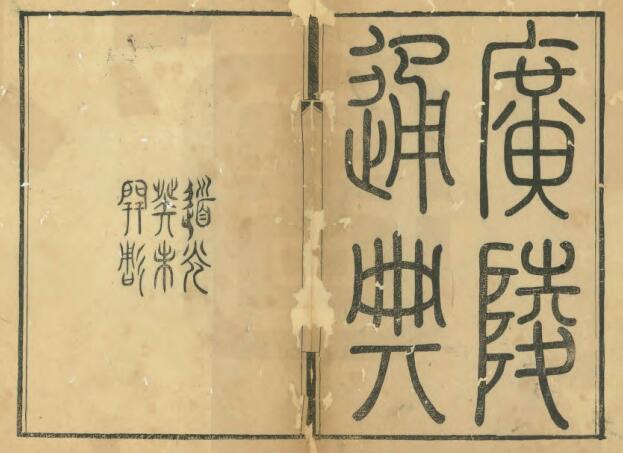 廣陵
通典
道光
癸未
開彫